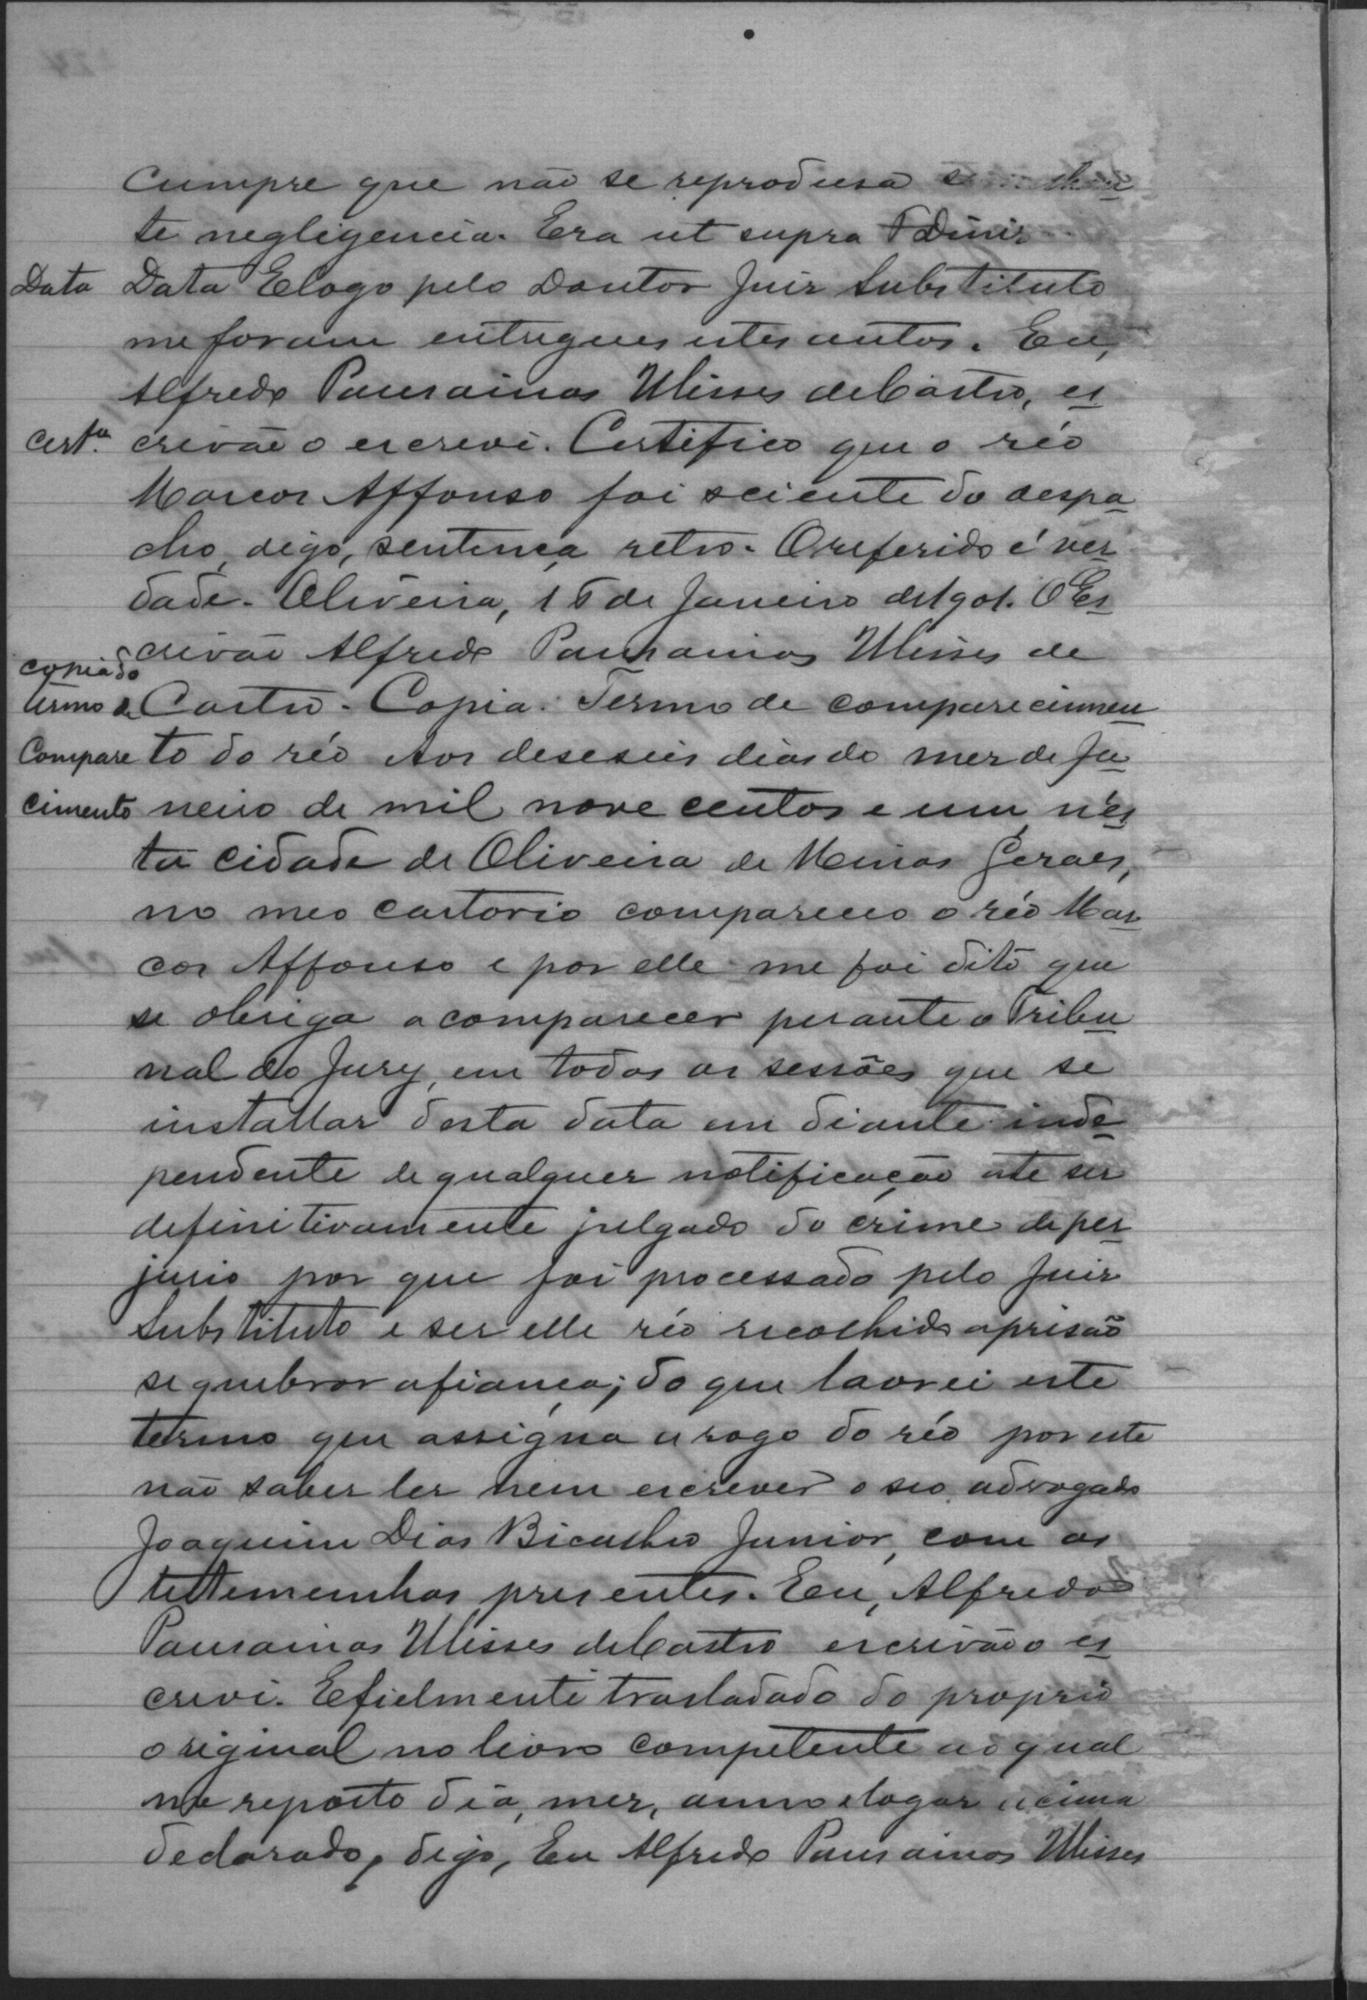 cumpre que não se reprodusa
te negligencia. Era ut supra
Data Data E logo pelo Doutor Juiz Substituto
me foram entregues estes autos. Eu,
Alfredo Pausainas Ulisses de Castro, es
cert.ª crivão o escrevi. Certifico que o réo
Marcos Affonso foi sciente do despa
cho, digo, sentença retro. O referido é ver
dade. Oliveira, 16 de Janeiro de 1901. O Es
crivão Alfredo Pausainas Ulisses de
copia do
termo de Castro. Copia. Termo de comparecimen
Compare to do réo Aos deseseis dias do mez de Ja
cimento neiro de mil nove centos e um, n'es
ta cidade de Oliveira de Minas Geraes,
no meo cartorio compareceo o réo Mar
cos Affonso e por elle me foi dito que
se obriga a comparecer perante o Tribu
nal do Jury, em todas as sessões que se
installar desta data em diante inde
pendente de qualquer notificação até ser
definitivamente julgado do crime de per
jurio por que foi processado pelo Juiz
Substituto e ser elle réo recolhido a prisão
se quebrar a fiança; do que lavrei este
termo que assigna a rogo do réo por este
não saber ler nem escrever o seo advogado
Joaquim Dias Bicalho Junior, com as
testemunhas presentes. Eu, Alfredo
Pausainas Ulisses de Castro escrivão o es
crevi. E fielmente trasladado do proprio
original no livro competente ao qual
me reporto dia, mez, anno e logar acima
declarado, digo, Eu Alfredo Pausainas Ulisses